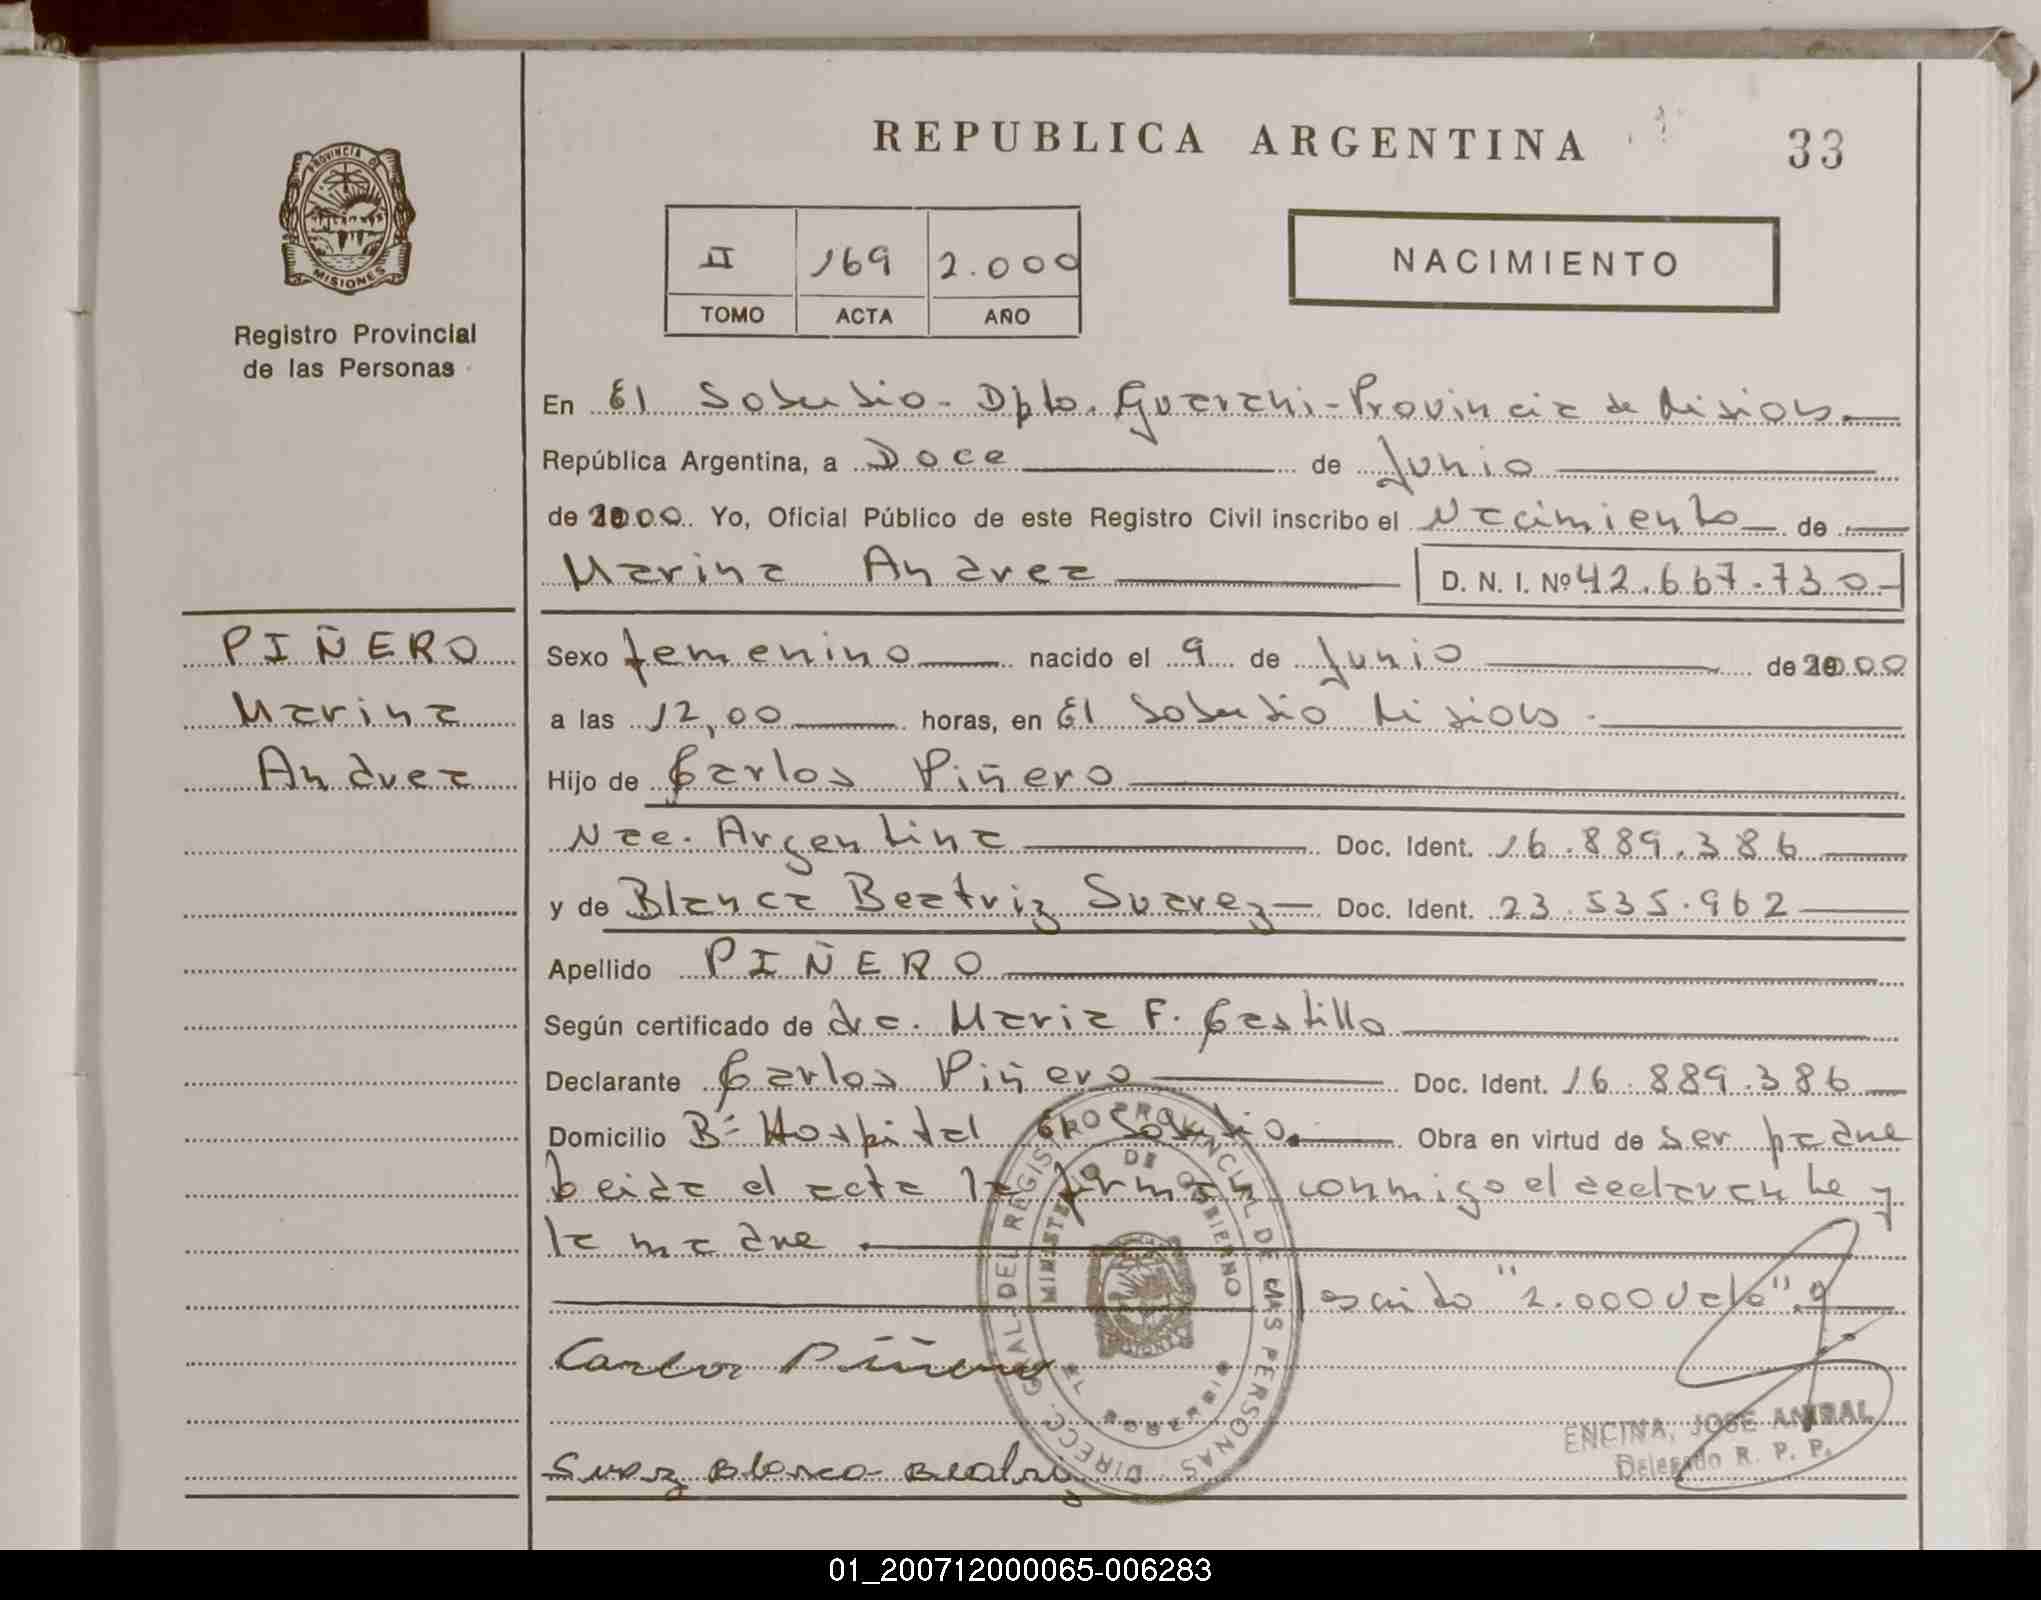 REPUBLICA ARGENTINA
33
PROVINCIA DE
MISIONES
Registro Provincial
de las Personas
II 169 2.000
TOMO ACTA AÑO
NACIMIENTO
En El Soberbio - Dpto. Guarani - Provincia de Misiones.
República Argentina, a Doce de Junio
de 2000. Yo, Oficial Público de este Registro Civil inscribo el Nacimiento de
Marina Andrea D. N. I. Nº 42.667.730.-
PIÑERO
Marina
Andrea
Sexo femenino nacido el 9 de Junio de 2000
a las 12,00 horas, en El Soberbio Misiones.
Hijo de Carlos Piñero
Nac. Argentina Doc. Ident. 16.889.386
y de Blanca Beatriz Suarez Doc. Ident. 23.535.962
Apellido PIÑERO
Según certificado de dra. Maria F. Castillo
Declarante Carlos Piñero Doc. Ident. 16.889.386
Domicilio Bº Hospital El Soberbio. Obra en virtud de ser padre
Leida el acta la firman conmigo el declarante y
la madre.
"2.000 Vale".
Carlos Piñero
Suarez Blanca Beatriz
DIRECC. GRAL. DEL REGISTRO PROVINCIAL DE LAS PERSONAS
MINISTERIO DE GOBIERNO
EL SOBERBIO
ENCINA, JOSE ANIBAL
Delegado R. P. P.
01_200712000065-006283